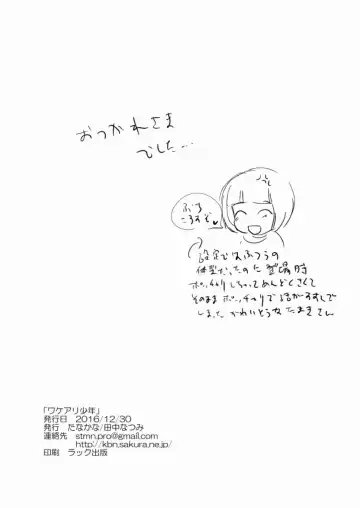 おつかれさま
でした…
ぶち
ころすぞ♥
設定ではふつうの
体型だったのに登場時
ポッチャリしちゃってめんどくさくて
そのままポッチャリで話がすすんで
しまったかわいそうなたまきさん
「ワケアリ少年」
発行日 2016/12/30
発行 たなかな/田中なつみ
連絡先 stmn.pro@gmail.com
http://kbn.sakura.ne.jp/
印刷 ラック出版